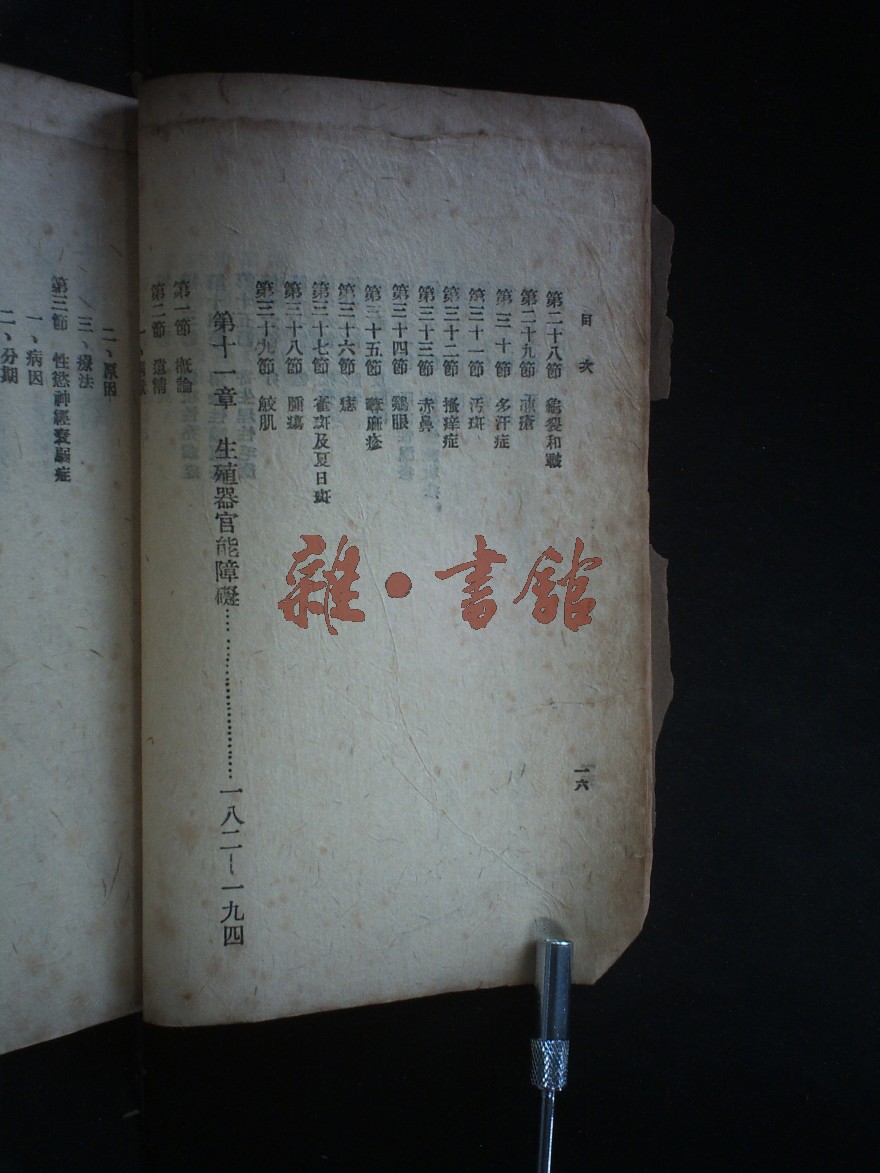 目次
第二十八節 龜裂和皸
第二十九節 凍瘡
第三十節 多汗症
第三十一節 汚斑
第三十二節 搔痒症
第三十三節 赤鼻
第三十四節 鷄眼
第三十五節 蕁麻疹
第三十六節 痣
第三十七節 雀斑及夏日斑
第三十八節 腫瘍
第三十九節 鮫肌
第十一章 生殖器官能障礙……………………一八二—一九四
第一節 概論
第二節 遺精
一、
一六
二、原因
三、療法
第三節 性慾神經衰弱症
一、病因
二、分期
雜·書館